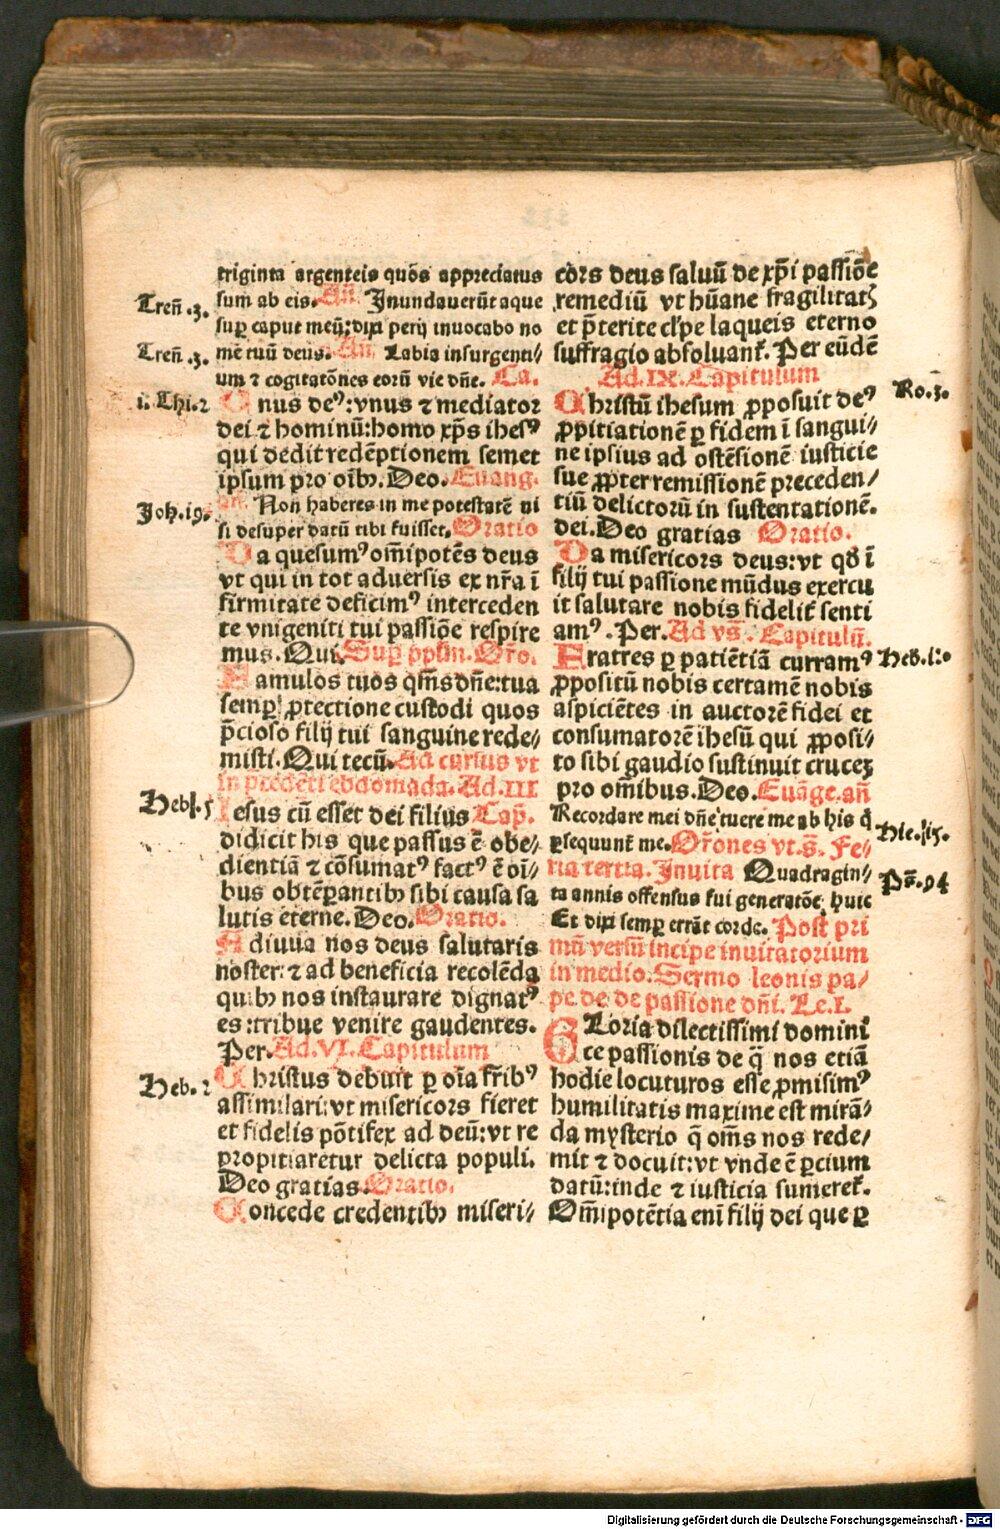 triginta argenteis quōs appreciatus
Treñ .3.
sum ab eis. Añ. Inundauerūt aque
sup caput meū: dixi perij inuocabo no
Treñ .3.
mē tuū deus. An. Labia insurgenti/
um ⁊ cogitatōnes eorū vie dñe. Ca.
i. Thi. 2
Unus deꝰ: vnus ⁊ mediator
dei ⁊ hominū: homo xp̄s ihesꝰ
qui dedit redēptionem semet
ipsum pro oibꝫ. Deo. Euang.
Joh. 19.
añ. Non haberes in me potestatē ni
si desuper datū tibi fuisset. Oratio
Da quesumꝰ om̄ipotēs deus
vt qui in tot aduersis ex nr̄a ī
firmitate deficimꝰ interceden
te vnigeniti tui passiōe respire
mus. Qui. Sup pplm. Or̄o.
Famulos tuos qm̄s dñe: tua
semp ꝓtectione custodi quos
p̄cioso filij tui sanguine rede/
misti. Qui tecū. Ad cursus vt
in predēti ebdomada. Ad. III
Heb. 5
Iesus cū esset dei filius Cap.
didicit his que passus ē obe/
dientiā ⁊ cōsumatꝰ factꝰ ē oī/
bus obtēꝑantibꝫ sibi causa sa
lutis eterne. Deo. Oratio.
Adiuua nos deus salutaris
noster: ⁊ ad beneficia recolēda
quibꝫ nos instaurare dignatꝰ
es: tribue venire gaudentes.
Per. Ad. VI. Capitulum
Heb. 2
Christus debuit ꝑ oīa fr̄ibꝰ
assimilari: vt misericors fieret
et fidelis pōtifex ad deū: vt re
propitiaretur delicta populi.
Deo gratias. Oratio.
Concede credentibꝫ miseri/
cors deus saluū de xp̄i passiōe
remediū vt hūane fragilitatꝭ
et p̄terite cl'pe laqueis eterno
suffragio absoluant̄. Per eūdē
Ad. IX. Capitulum
Ro. 3.
Christū ihesum ꝓposuit deꝰ
ꝓpitiationē ꝑ fidem ī sangui/
ne ipsius ad ostēsionē iusticie
sue ꝓpter remissionē preceden/
tiū delictorū in sustentationē.
dei. Deo gratias Oratio.
Da misericors deus: vt qd̄ ī
filij tui passione mūdus exercu
it salutare nobis fidelit̄ senti
amꝰ. Per. Ad vs̄. Capitulū.
Heb. 1:0
Fratres ꝑ patiētiā curramꝰ
ꝓpositū nobis certamē nobis
aspiciētes in auctorē fidei et
consumatorē ihesū qui ꝓposi/
to sibi gaudio sustinuit crucex
pro om̄ibus. Deo. Euāge. añ
Recordare mei dñe tuere me ab his q̄
Hie. 15.
ꝑsequunt̄ me. Or̄ones vt. s̄. Fe/
ria tertia. Inuita Quadragin/
Ps̄. 94
ta annis offensus fui generatōe huic
Et dixi semp errāt corde. Post pri
mū versū incipe inuitatorium
in medio. Sermo leonis pa/
pe. de de passione dn̄i. Le. I.
Gloria dilectissimi domini
ce passionis de q̄ nos etiā
hodie locuturos esse ꝓmisimꝰ
humilitatis maxime est mirā/
da mysterio q̄ om̄s nos rede/
mit ⁊ docuit: vt vnde ē ꝑcium
datū: inde ⁊ iusticia sumeret̄.
Om̄ipotētia enī filij dei que ꝑ
Digitalisierung gefördert durch die Deutsche Forschungsgemeinschaft - DFG